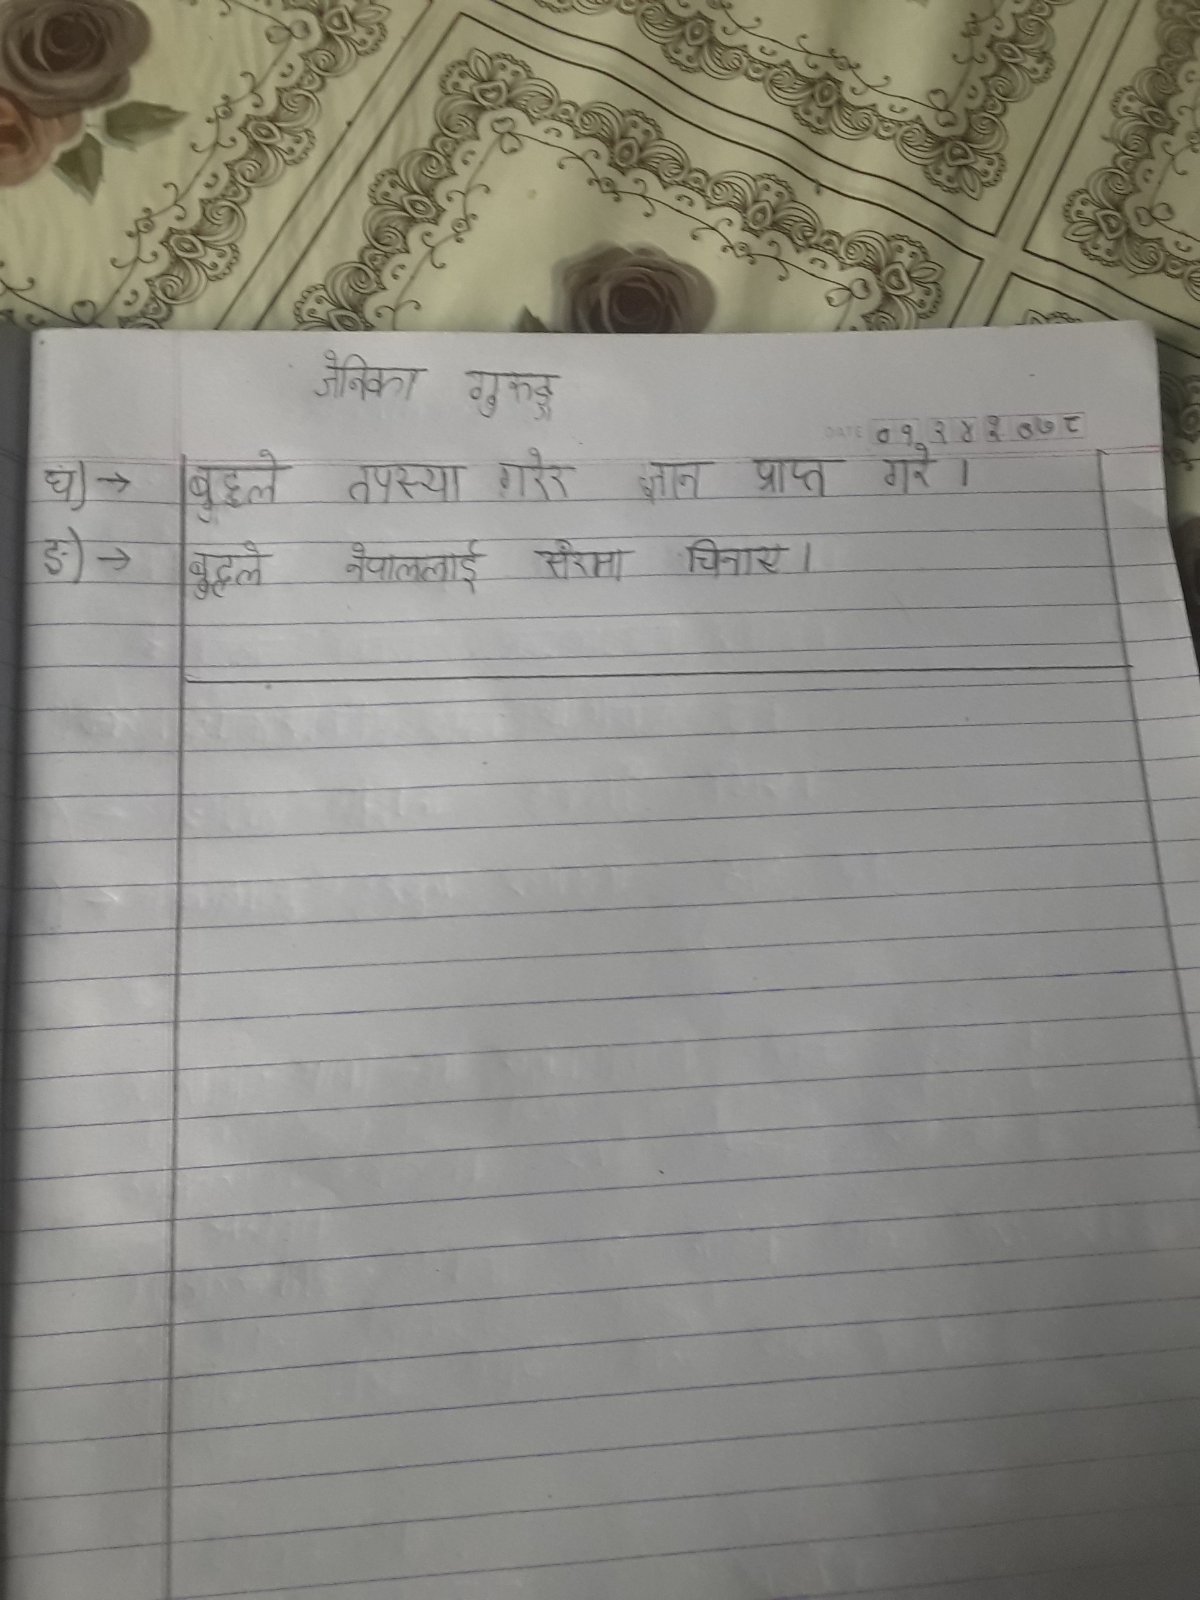 जेनिका गुरुङ
DATE ०१ २४ २०७८
घ) → बुद्धले तपस्या गरेर ज्ञान प्राप्त गरे ।
ङ) → बुद्धले नेपाललाई संसारमा चिनाए ।